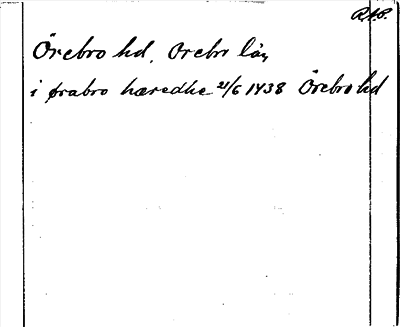 R.A.P.
Örebro hd, Örebro län
i ørabro hæredhe 21/6 1438 Örebro hd